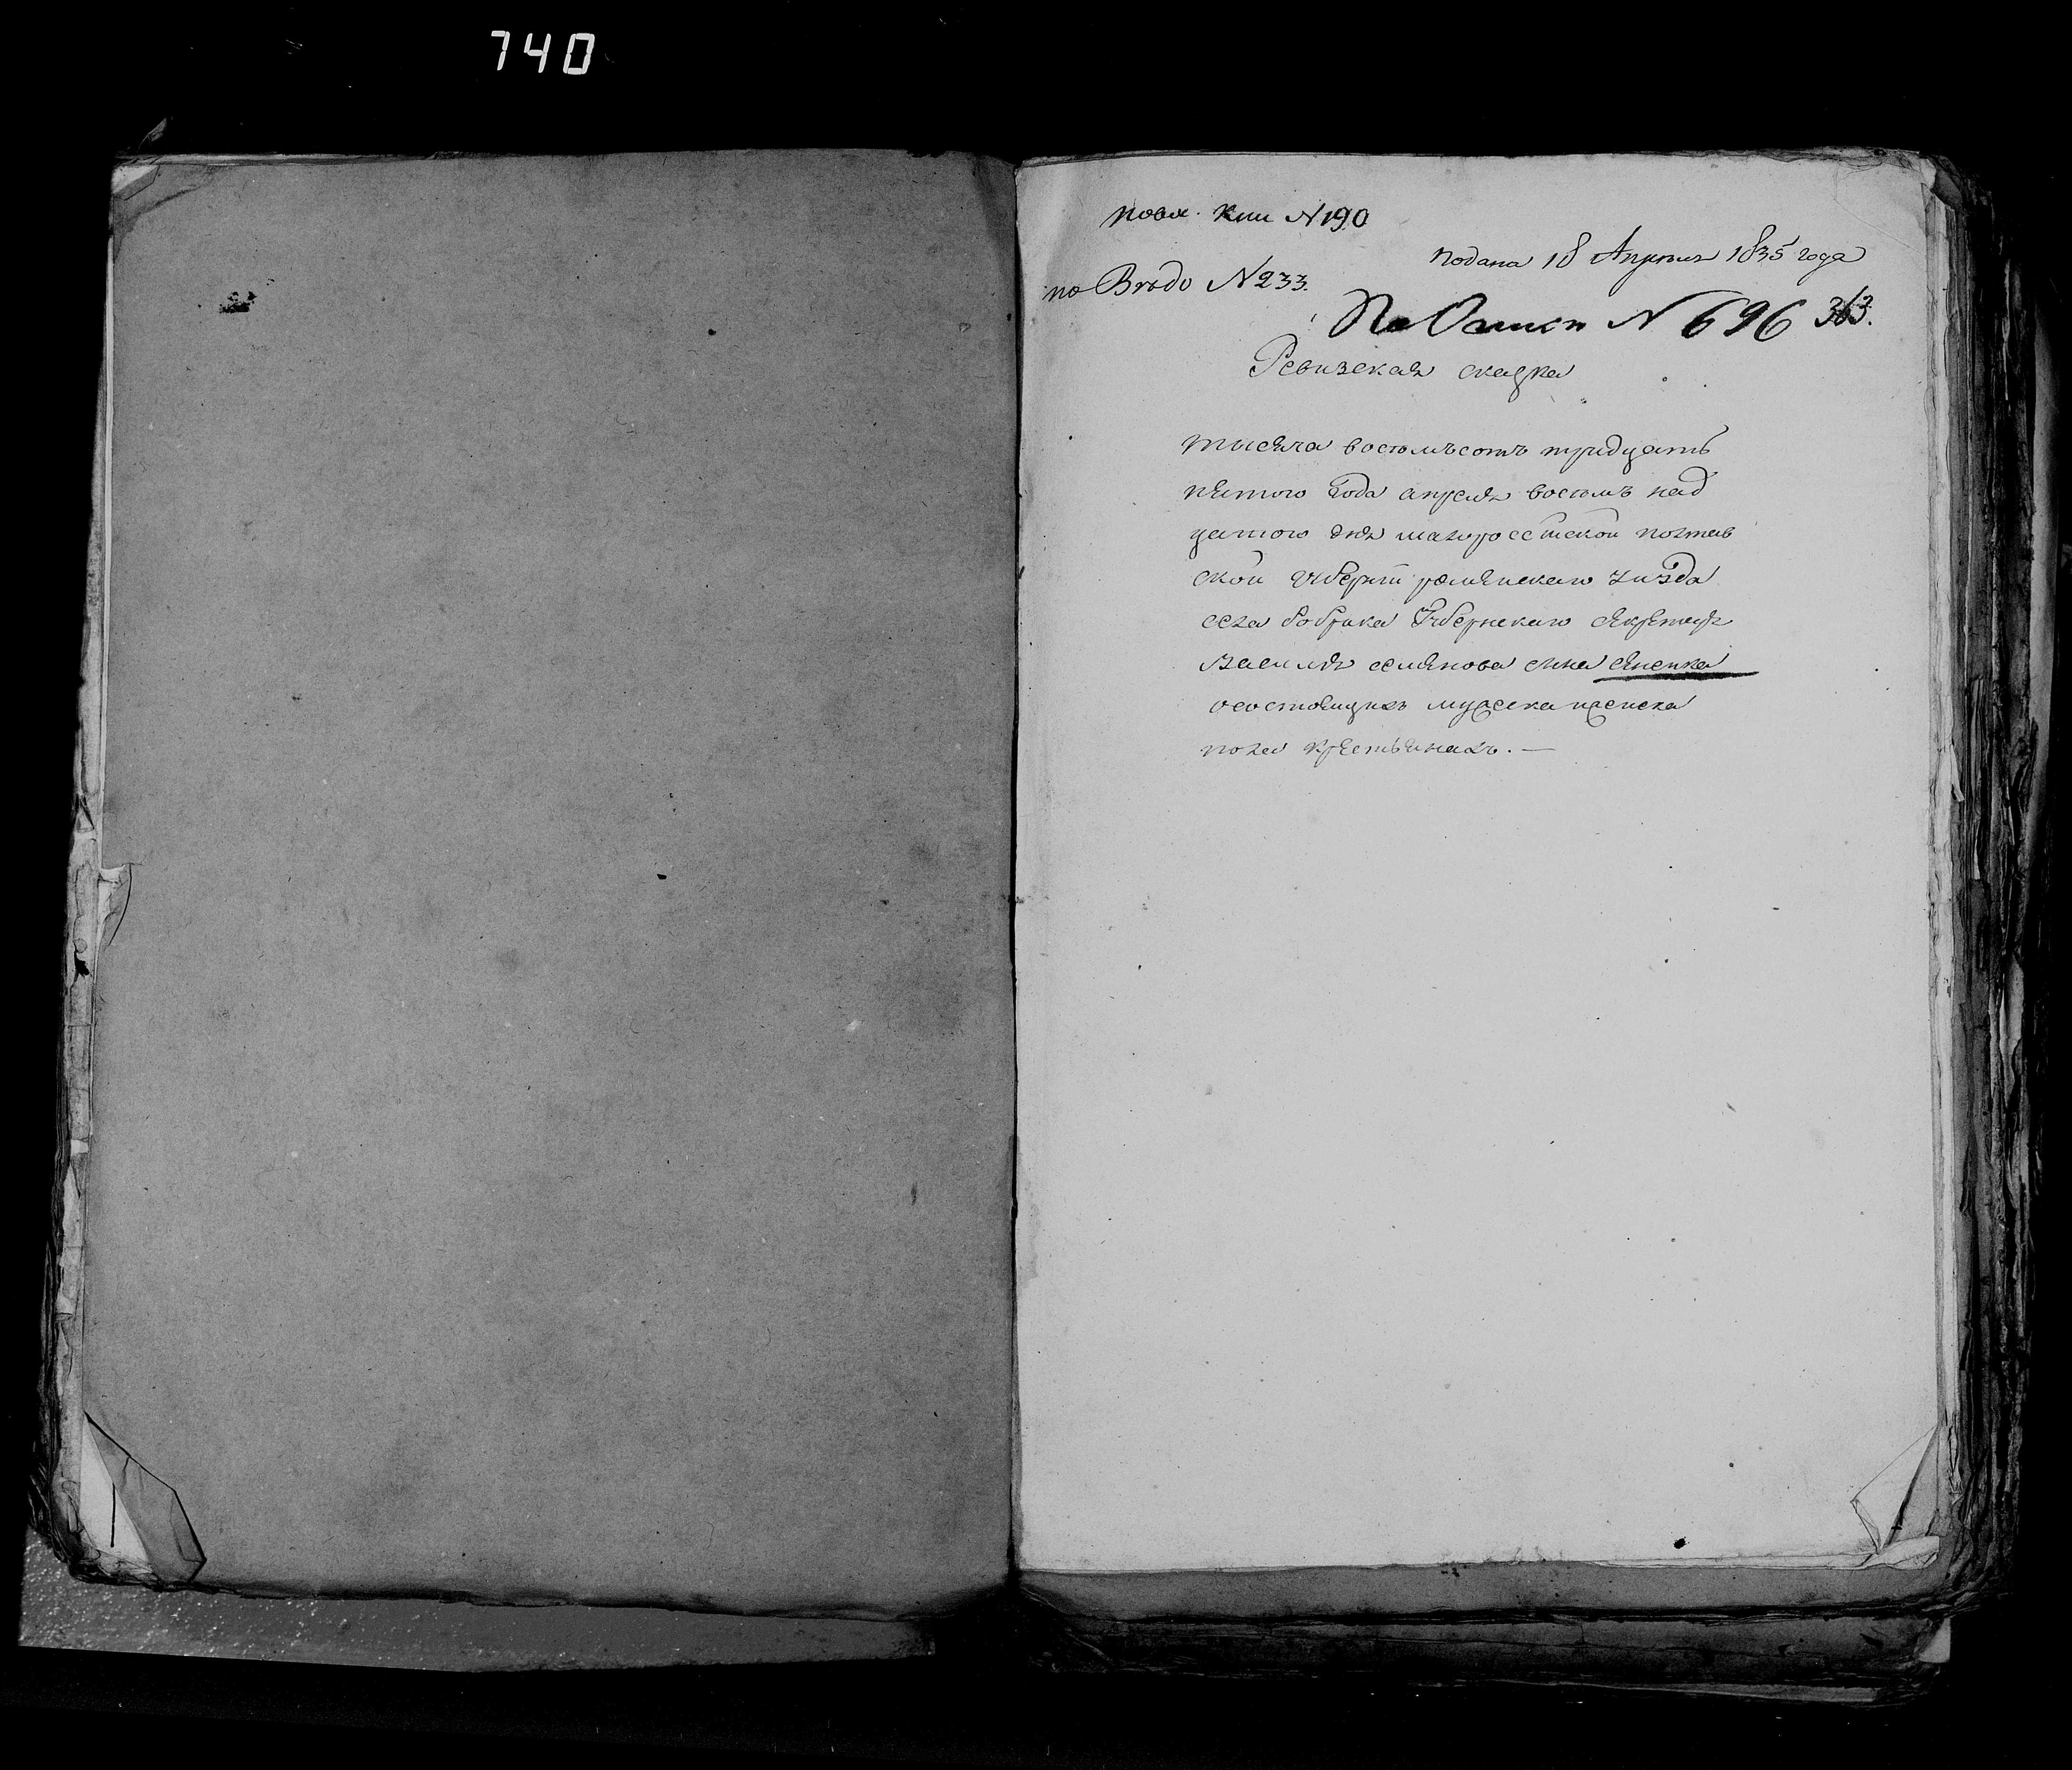 740
повх. кни №190
подана 18 Апреля 1835 года
по Вѣдо №233.
По Описи №696 363.
Ревизская сказка
тысяча восемъсотъ тридцать
пятого года апреля восемъ над
цатого дня малоросеiской полтав
ской губернiи роменскаго уизда
села бобрика Губернскаго секретаря
василя семенова сина
осостоящихъ мужеска иженска
пола крестьянахъ. —